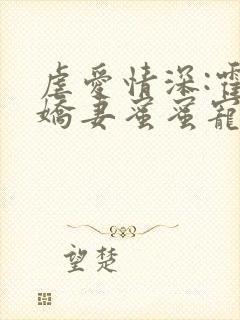 虐愛情深:霍
嬌妻蜜蜜寵
望楚